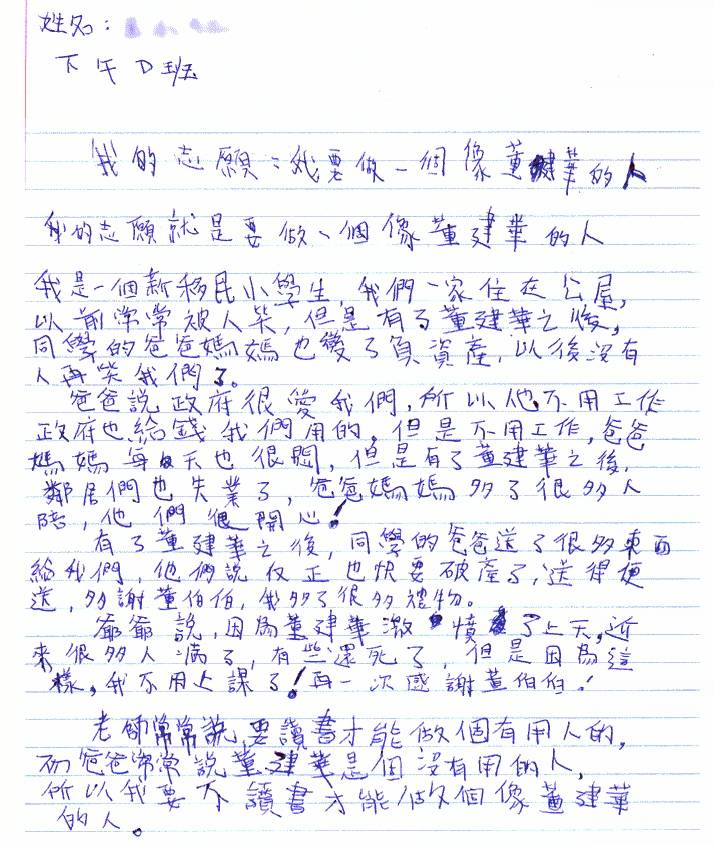 姓名：
下午D班
我的志願：我要做一個像董建華的人
我的志願就是要做一個像董建華的人
我是一個新移民小學生，我們一家住在公屋，
以前常常被人笑，但是有了董建華之後，
同學的爸爸媽媽也變了負資產，以後沒有
人再笑我們了。
爸爸說政府很愛我們，所以他不用工作
政府也給錢我們用的，但是不用工作，爸爸
媽媽每天也很悶，但是有了董建華之後，
鄰居們也失業了，爸爸媽媽多了很多人
陪，他們很開心！
有了董建華之後，同學的爸爸送了很多東西
給我們，他們說反正也快要破產了，送得便
送，多謝董伯伯，我多了很多禮物。
爺爺說，因為董建華激憤了上天，近
來很多人病了，有些還死了，但是因為這
樣，我不用上課了！再一次感謝董伯伯！
老師常常說，要讀書才能做個有用人的，
而爸爸常常說董建華是個沒有用的人，
所以我要不讀書才能做個像董建華
的人。